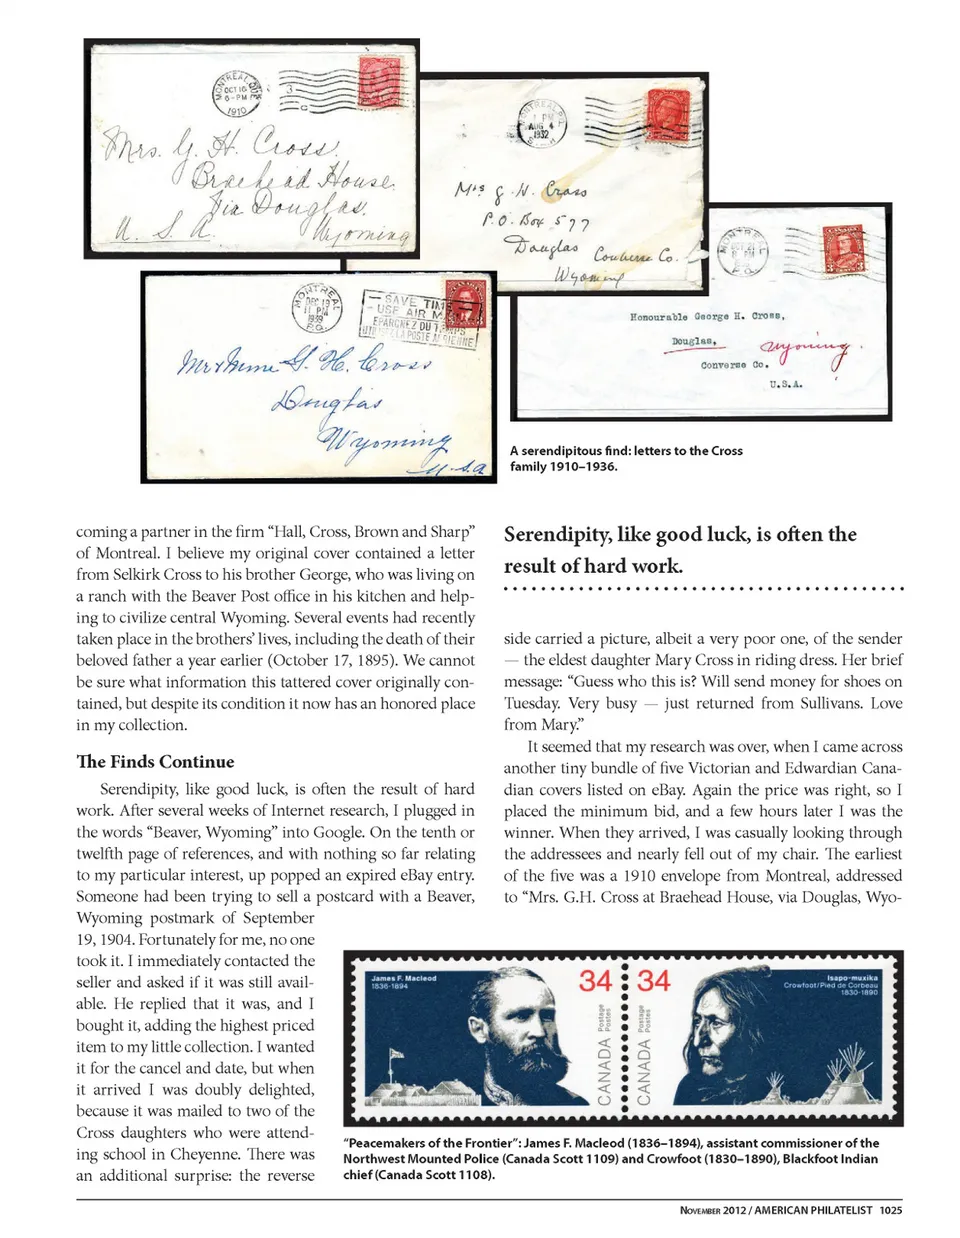 MONTREAL QUE
OCT 10
6-PM
1910
3
C
Mrs. G. H. Cross.
Braehead House.
Via Douglas.
U. S. A. Wyoming
MONTREAL P.Q.
1 PM
AUG 4
1932
Mrs G. H. Cross
P.O. Box 577
Douglas Converse Co.
Wyoming
MONTREAL
8 PM
P.Q.
Honourable George H. Cross,
Douglas, Wyoming.
Converse Co.
U.S.A.
MONTREAL
DEC 19
11 PM
1939
P.Q.
SAVE TIME
USE AIR MAIL
EPARGNEZ DU TEMPS
UTILISEZ LA POSTE AERIENNE
G. H. Cross
Douglas
Wyoming
U.S.A.
A serendipitous find: letters to the Cross
family 1910–1936.
coming a partner in the firm “Hall, Cross, Brown and Sharp”
of Montreal. I believe my original cover contained a letter
from Selkirk Cross to his brother George, who was living on
a ranch with the Beaver Post office in his kitchen and help-
ing to civilize central Wyoming. Several events had recently
taken place in the brothers’ lives, including the death of their
beloved father a year earlier (October 17, 1895). We cannot
be sure what information this tattered cover originally con-
tained, but despite its condition it now has an honored place
in my collection.
The Finds Continue
Serendipity, like good luck, is often the result of hard
work. After several weeks of Internet research, I plugged in
the words “Beaver, Wyoming” into Google. On the tenth or
twelfth page of references, and with nothing so far relating
to my particular interest, up popped an expired eBay entry.
Someone had been trying to sell a postcard with a Beaver,
Wyoming postmark of September
19, 1904. Fortunately for me, no one
took it. I immediately contacted the
seller and asked if it was still avail-
able. He replied that it was, and I
bought it, adding the highest priced
item to my little collection. I wanted
it for the cancel and date, but when
it arrived I was doubly delighted,
because it was mailed to two of the
Cross daughters who were attend-
ing school in Cheyenne. There was
an additional surprise: the reverse
Serendipity, like good luck, is often the
result of hard work.
side carried a picture, albeit a very poor one, of the sender
— the eldest daughter Mary Cross in riding dress. Her brief
message: “Guess who this is? Will send money for shoes on
Tuesday. Very busy — just returned from Sullivans. Love
from Mary.”
It seemed that my research was over, when I came across
another tiny bundle of five Victorian and Edwardian Cana-
dian covers listed on eBay. Again the price was right, so I
placed the minimum bid, and a few hours later I was the
winner. When they arrived, I was casually looking through
the addressees and nearly fell out of my chair. The earliest
of the five was a 1910 envelope from Montreal, addressed
to “Mrs. G.H. Cross at Braehead House, via Douglas, Wyo-
James F. Macleod
1836-1894
34
Postage
Postes
CANADA
34
Postage
Postes
CANADA
Isapo-muxika
Crowfoot/Pied de Corbeau
1830-1890
“Peacemakers of the Frontier”: James F. Macleod (1836–1894), assistant commissioner of the
Northwest Mounted Police (Canada Scott 1109) and Crowfoot (1830–1890), Blackfoot Indian
chief (Canada Scott 1108).
November 2012 / AMERICAN PHILATELIST 1025